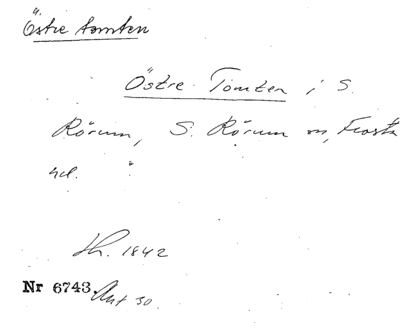 Östre tomten
Östre Tomten i S.
Rörum, S. Rörum sn, Frosta
hd.
Sk. 1842
Nr 6743 Akt 30